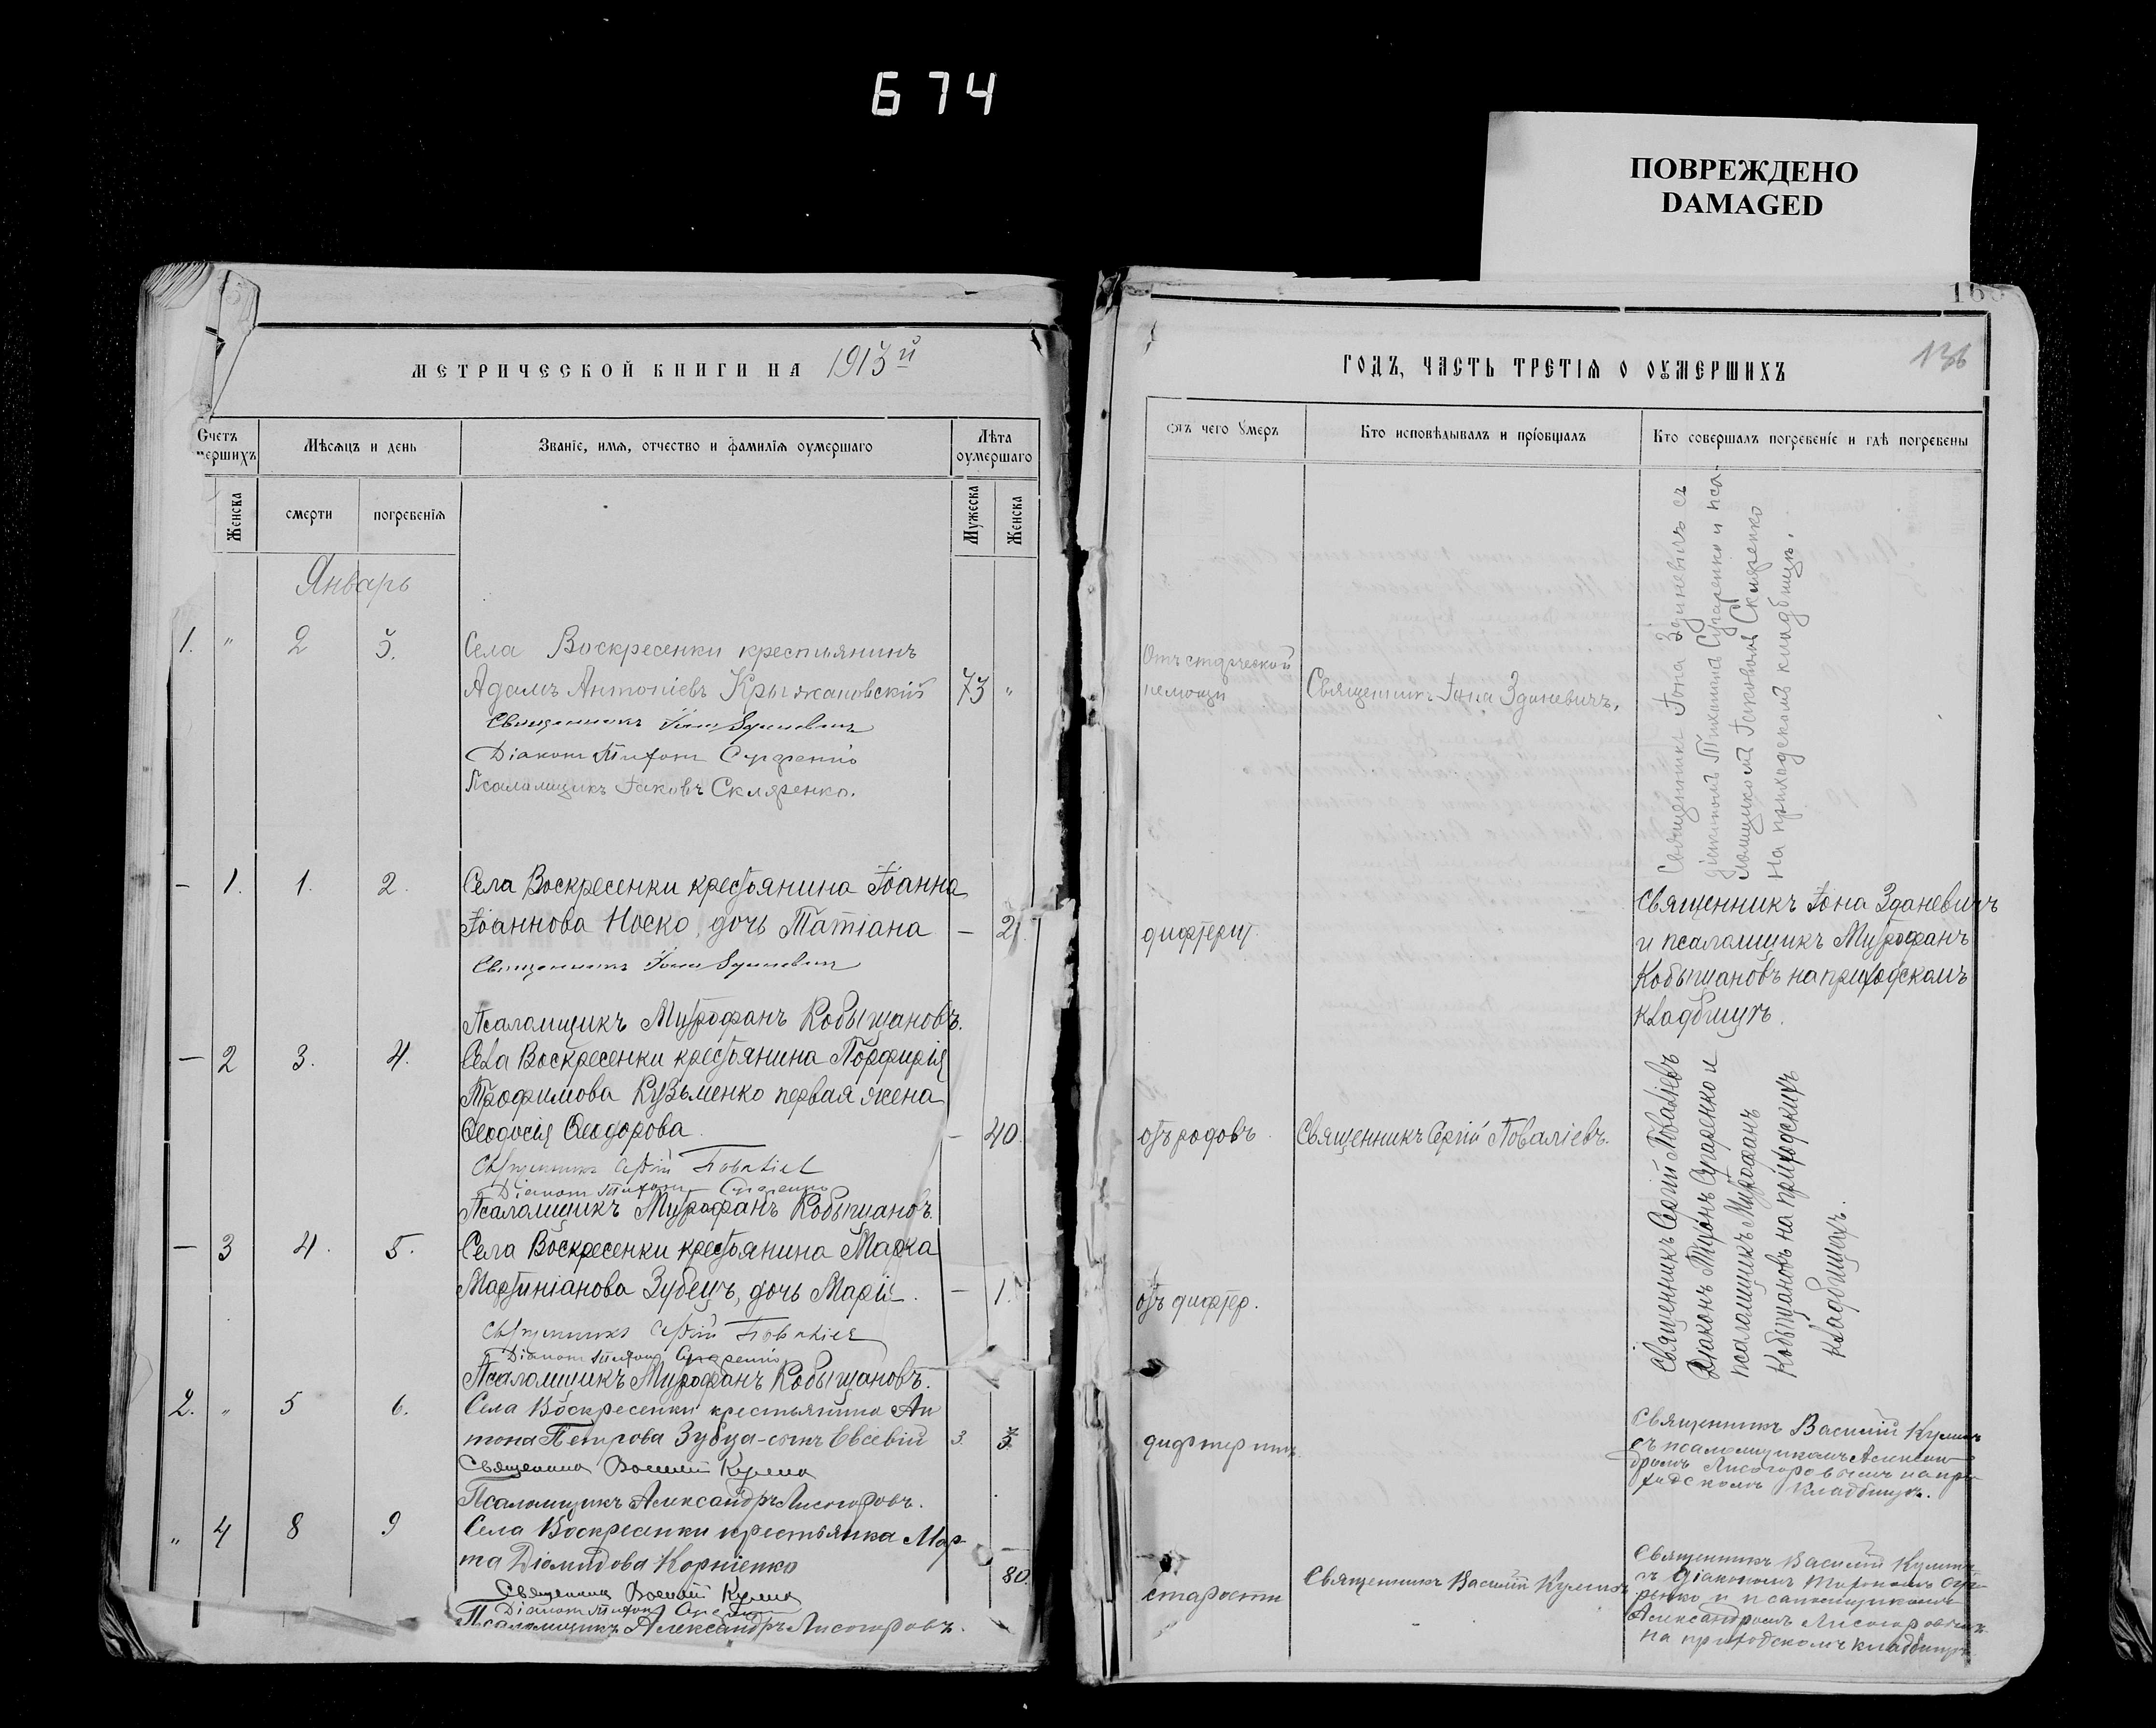 674
ПОВРЕЖДЕНО
DAMAGED
МЕТРИЧЕСКОЙ КНИГИ НА 1913й
Счетъ мершихъ
Мѣсяцъ и день
Званіе, имя, отчество и фамилія оумершаго
Лѣта оумершаго
Женска
смерти
погребенія
Мужеска
Женска
Январь
1. " 2 3.
Села Воскресенки крестьянинъ
Адамъ Антоніевъ Крыжановскій 73 "
Священникъ Іона Зданевичъ
Діаконъ Тихонъ Сугаренко
Псаломщикъ Іаковъ Скляренко.
— 1. 1. 2.
Села Воскресенки крестьянина Іоанна
Іоаннова Носко, дочь Татіана — 2
Священникъ Іона Зданевичъ
Псаломщикъ Митрофанъ Кобыщановъ.
— 2 3. 4.
Села Воскресенки крестьянина Порфирія
Трофимова Кузьменко первая жена
Ѳеодосія Ѳеодорова. — 40.
Священникъ Сергій
Діаконъ Тихонъ
Псаломщикъ Митрофанъ Кобыщановъ.
— 3 4. 5.
Села Воскресенки крестьянина Марка
Мартиніанова Зубецъ, дочь Марія. — 1.
Священникъ Сергій
Діаконъ Тихонъ
Псаломщикъ Митрофанъ Кобыщановъ.
2. " 5 6.
Села Воскресенки крестьянина Ан
тона Петрова Зубца-сынъ Евсевій 3.
Священникъ Василій
Псаломщикъ Александръ Лисогоровъ.
" 4 8 9
Села Воскресенки крестьянка Мар-
та Діомидова Корніенко — 80.
Священникъ Василій
Діаконъ Тихонъ
Псаломщикъ Александръ Лисогоровъ.
ГОДЪ, ЧАСТЬ ТРЕТІЯ О ОУМЕРШИХЪ
136
отъ чего умеръ
Кто исповѣдывалъ и пріобщалъ
Кто совершалъ погребеніе и гдѣ погребены
Отъ старческой
немощи
Священникъ Іона Зданевичъ.
Священникъ Іона Зданевичъ съ
діакономъ Тихономъ Сугаренко и пса-
ломщикомъ Іаковомъ Скляренко
на приходскомъ кладбищѣ.
дифтерит.
Священникъ Іона Зданевичъ
и псаломщикъ Митрофанъ
Кобыщановъ на приходскомъ
кладбищѣ.
отъ родовъ.
Священникъ Сергій Поваліевъ.
Священникъ Сергій Поваліевъ
Діаконъ Тихонъ Сугаренко и
псаломщикъ Митрофанъ
Кобыщановъ на приходскихъ
кладбищахъ.
отъ дифтер.
дифтеритъ
Священникъ Василій
съ псаломщикомъ Алексан-
дромъ Лисогоровымъ на при-
ходскомъ кладбищѣ.
старости
Священникъ Василій
Священникъ Василій
съ діакономъ Тихономъ Суга-
ренко и псаломщикомъ
Александромъ Лисогоровымъ
на приходскомъ кладбищѣ.